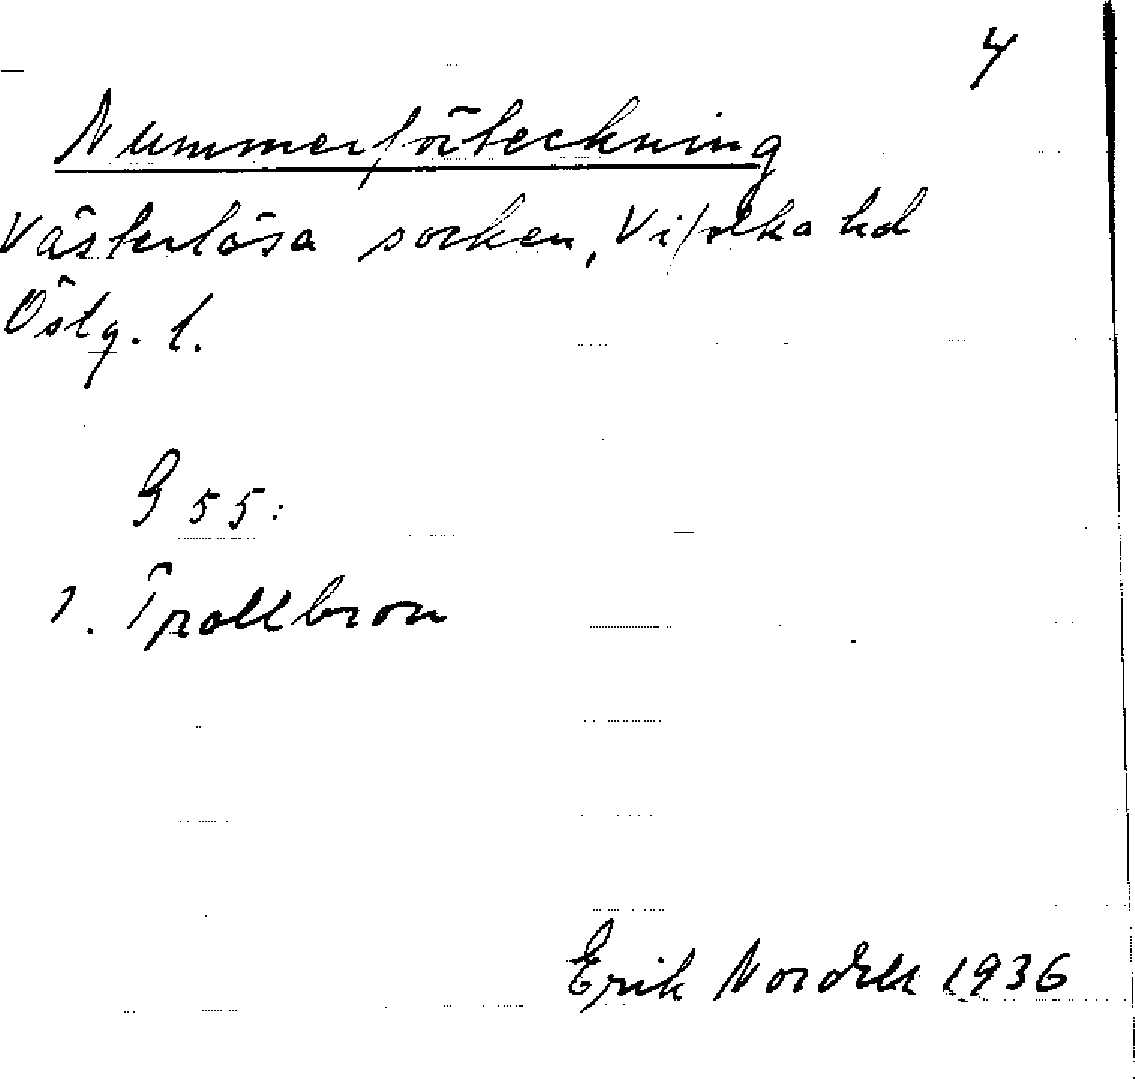 4
Nummerförteckning
Västerlösa socken, Vifolka hd
Östg. l.
G 55:
1. Trollbron
Erik Nordell 1936